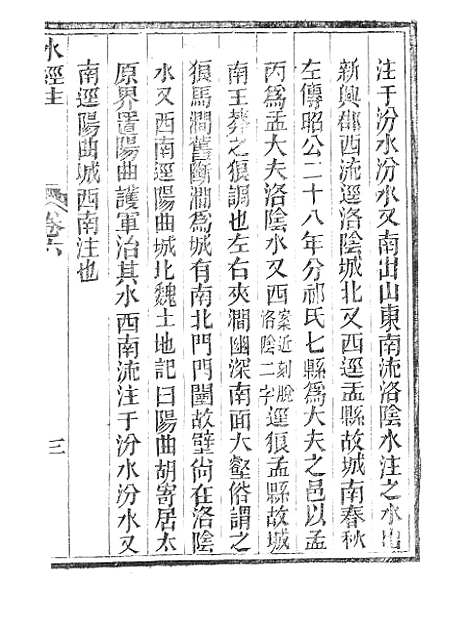 注于汾水汾水又南出山東南流洛陰水注之水出
新興郡西流逕洛陰城北又西逕盂縣故城南春秋
左傳昭公二十八年分祁氏七縣爲大夫之邑以孟
丙爲盂大夫洛陰水又西案近刻脫洛陰二字逕狼孟縣故城
南王莽之狼調也左右夾澗幽深南面大壑俗謂之
狼馬澗舊斷澗爲城有南北門門闉故壁尙在洛陰
水又西南逕陽曲城北魏土地記曰陽曲胡寄居太
原界置陽曲護軍治其水西南流注于汾水汾水又
南逕陽曲城西南注也
水經注 卷六 三